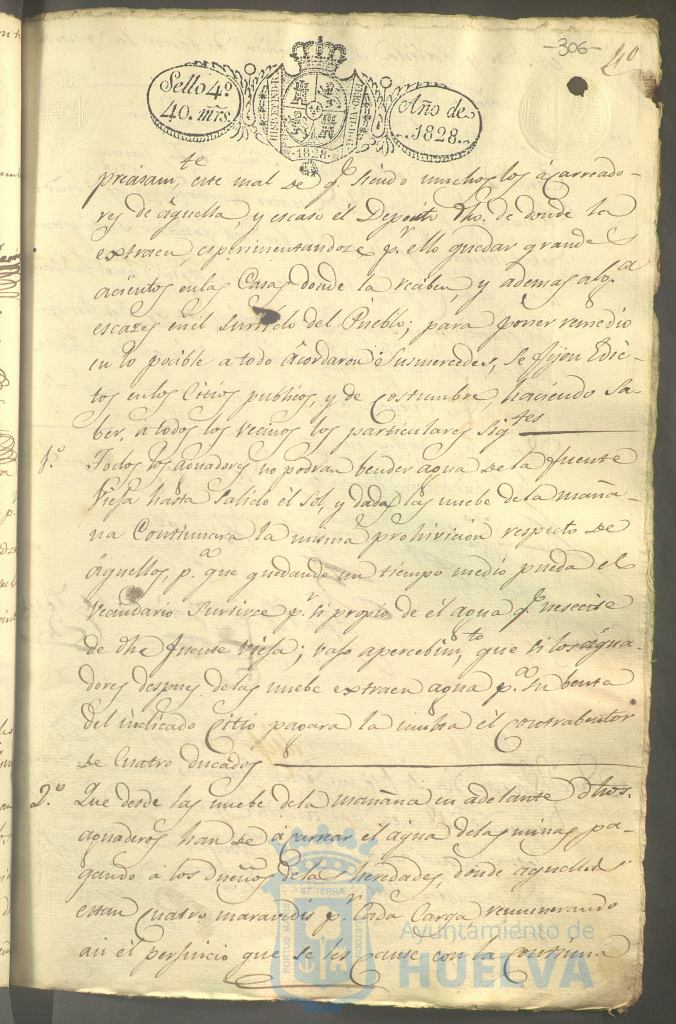 -306-
40
Sello 4º
40. mrs.
HISPAN
1828.
Año de
1828.
precisamte, este mal de q.e siendo muchos los ácarreado-
res de áquella, y escaso él Deposito dho. de donde la
extraen, esperimentandoze p.r ello quedar grandes
acientos en las Casas donde la reciben, y ademas alg.a
escazes en el Surtido del Pueblo; para poner remedio
en lo pocible a todo ácordaron Susmercedes, Se fijen Edic-
tos en los Citios publicos, y de Costumbre, haciendo Sa-
ber, a todos los vecinos los particulares Sigtes
1.º Todos los aguadores no podran bender agua de la fuente
Viesa hasta Salido él Sol, y dadas las nuebe de la maña-
na Continuara la misma prohivicion respecto de
áquellos, p.a que quedando un tiempo medio pueda el
vecindario Surtirse p.r si propio de él agua q.e nesecite
de dha fuente Viesa; vajo apercebimto, que si los água-
dores despues de las nuebe extraen agua p.a Su benta
del indicado Citio pagara la multa él Contrabentor
de Cuatro ducados
2.º Que desde las nuebe de la mañana en adelante dhos.
aguaderos han de ácarrear él água de las minas pa-
gando á los dueños de las heredades, donde aquellas
estan Cuatro maravedis p.r Cada Carga remunerando
asi él perjuicio que se les Cause con la Continua
PORTUS MARIS
ET TERRÆ
CUSTODIA
Ayuntamiento de
HUELVA